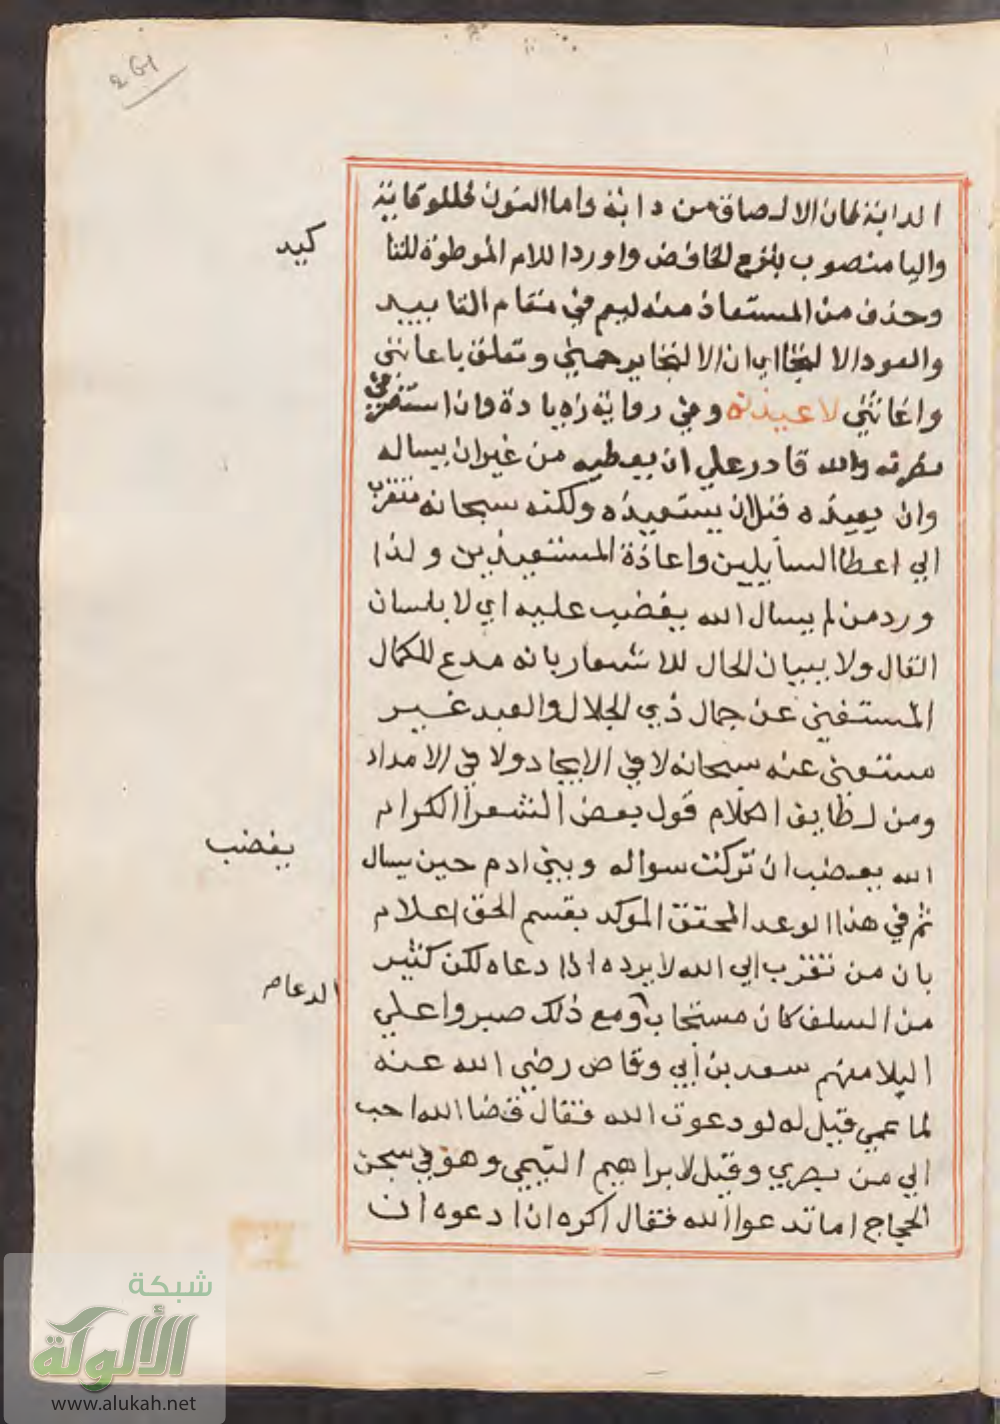 261
الدابة لمان الالصاق من دابة واما النون فللوقاية
واليا منصوب بنزع الخافض واورد اللام الموطوة للتا
كيد
وحذف من المستعاذ منه ليعم في مقام التابييد
والعوذ الالتجا اي ان التجا يرحمني وتعلق باعانتي
واغاثتي لاعيذنه وفي رواية زيادة وان استنصرني
نصرته والله قادر علي ان يعطيه من غير ان يساله
وان يعيذه قبل ان يستعيذه ولكنه سبحانه متقرب
الي اعطا السايلين واعاذة المستعيذين ولذا
ورد من لم يسال الله يغضب عليه اي لا بلسان
القال ولا ببيان الحال للاشعار بانه مدع للكمال
المستغني عن جمال ذي الجلال والعبد غير
مستغني عنه سبحانه لا في الايجاد ولا في الامداد
ومن لطايف الكلام قول بعض الشعرا الكرام
الله يغضب ان تركت سواله وبني ادم حين يسال
يغضب
ثم في هذا الوعد المحقق الموكد بقسم الحق اعلام
بان من تقرب الي الله لا يرده اذا دعاه لكن كثير
من السلف كان مستجاب ومع ذلك صبروا علي
الدعا صح
البلا منهم سعد بن أبي وقاص رضي الله عنه
لما عمي قيل له لو دعوت الله فقال قضا الله احب
الي من بصري وقيل لابراهيم التيمي وهو في سجن
الحجاج اما تدعوا الله فقال اكره ان ادعوه ان
شبكة
الألوكة
www.alukah.net